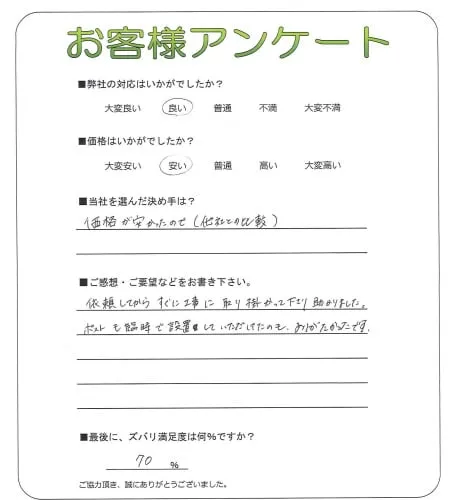 お客様アンケート
■弊社の対応はいかがでしたか？
大変良い 良い 普通 不満 大変不満
■価格はいかがでしたか？
大変安い 安い 普通 高い 大変高い
■当社を選んだ決め手は？
価格が安かったので（他社との比較）
■ご感想・ご要望などをお書き下さい。
依頼してから すぐに工事に取り掛かって下さり助かりました。
ポストも臨時で設置していただけたのも、ありがたかったです。
■最後に、ズバリ満足度は何％ですか？
70 ％
ご協力頂き、誠にありがとうございました。